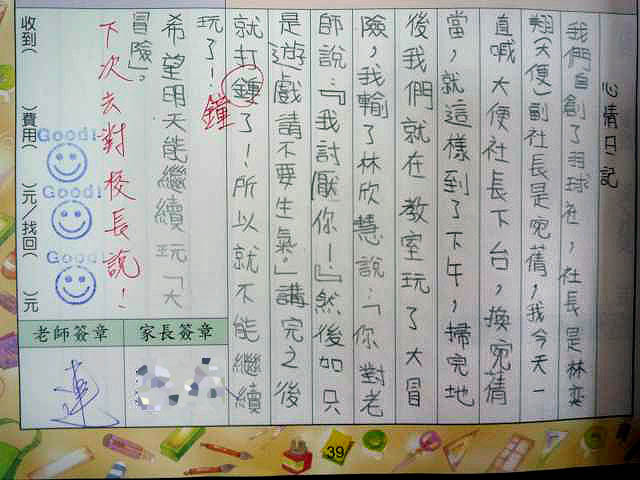 心情日記
我們自創了羽球社，社長是林奕
翔(大便)副社長是宛蒨，我今天一
直喊大便社長下台，換宛蒨
當，就這樣到了下午，掃完地
後我們就在教室玩了大冒
險，我輸了林欣慧說：「你對老
師說：『我討厭你！』然後加只
是遊戲請不要生氣。」講完之後
就打鍾了！所以就不能繼續
鐘
玩了！
希望明天能繼續玩「大
冒險」。
下次去對校長說！
Good!
Good!
Good!
收到( )費用( )元/找回( )元
家長簽章
老師簽章
連
39